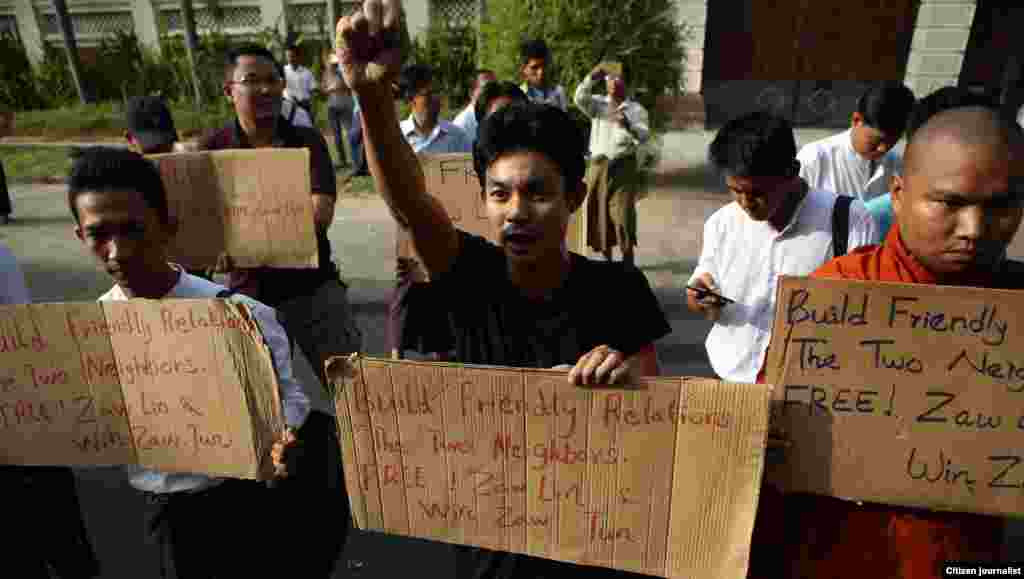 Build Friendly Relations
The Two Neighbors.
FREE! Zaw Lin &
Win Zaw Tun
Build Friendly Relations
The Two Neighbors.
FREE! Zaw Lin &
Win Zaw Tun
Build Friendly
The Two Neig
FREE! Zaw
Win Za
Citizen journalist